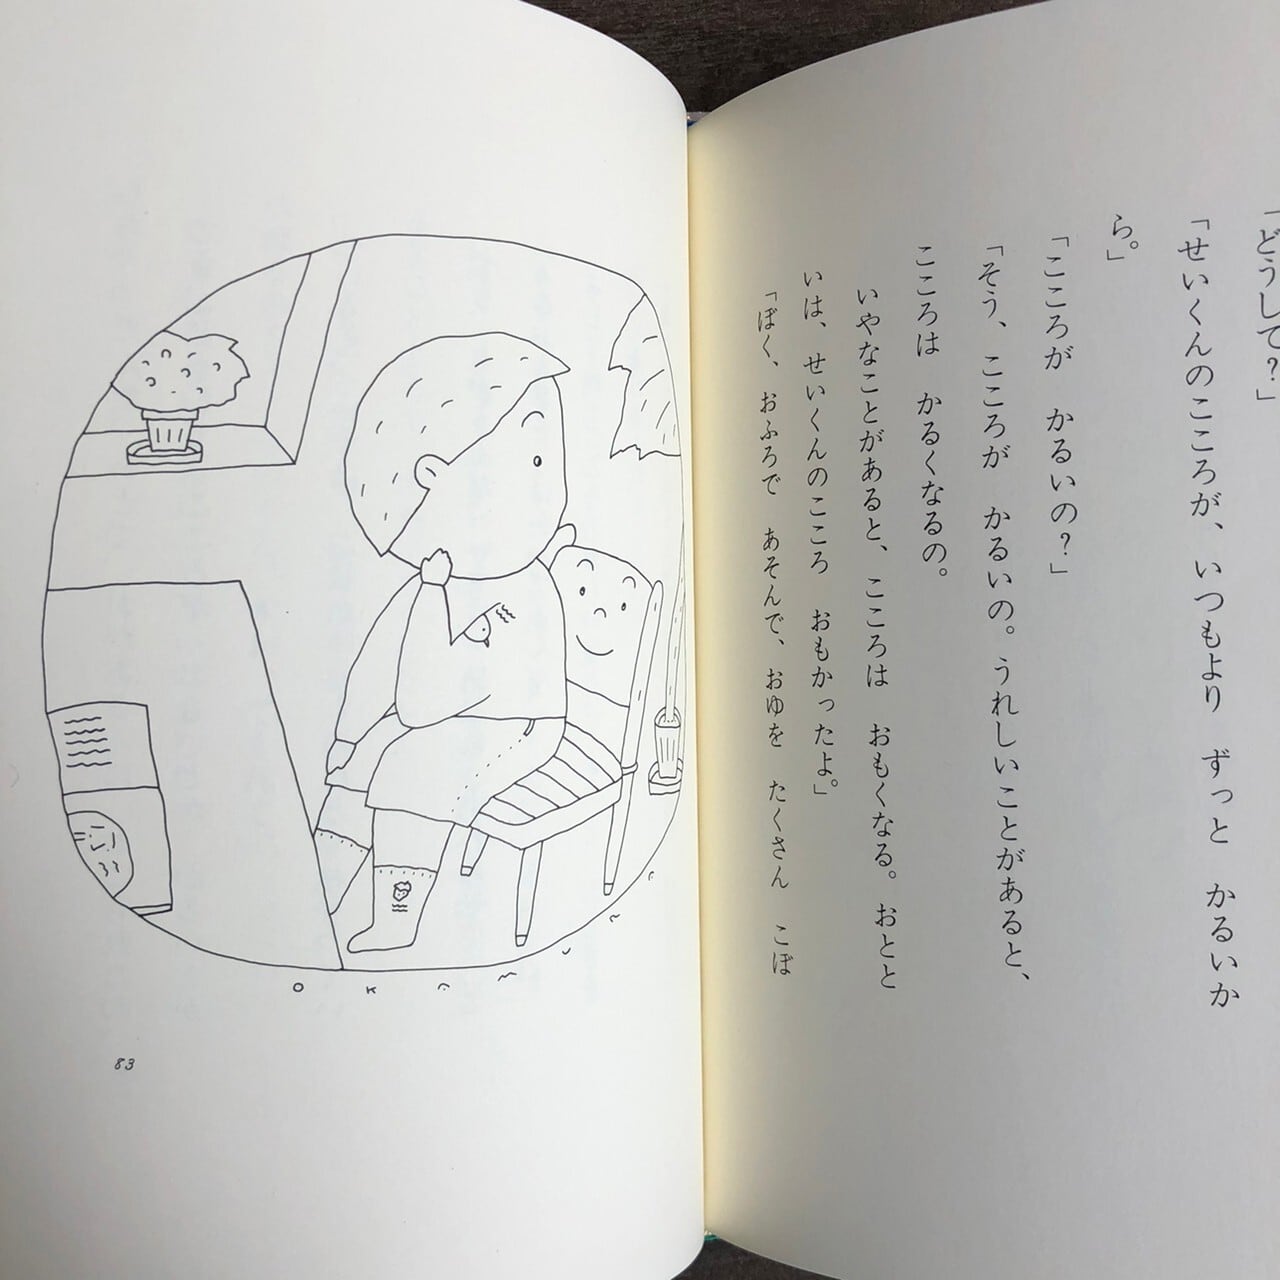 「どうして？」
「せいくんのこころが、いつもより　ずっと　かるいか
ら。」
「こころが　かるいの？」
「そう、こころが　かるいの。うれしいことがあると、
こころは　かるくなるの。
いやなことがあると、こころは　おもくなる。おとと
いは、せいくんのこころ　おもかったよ。」
「ぼく、おふろで　あそんで、おゆを　たくさん　こぼ
OKA
83